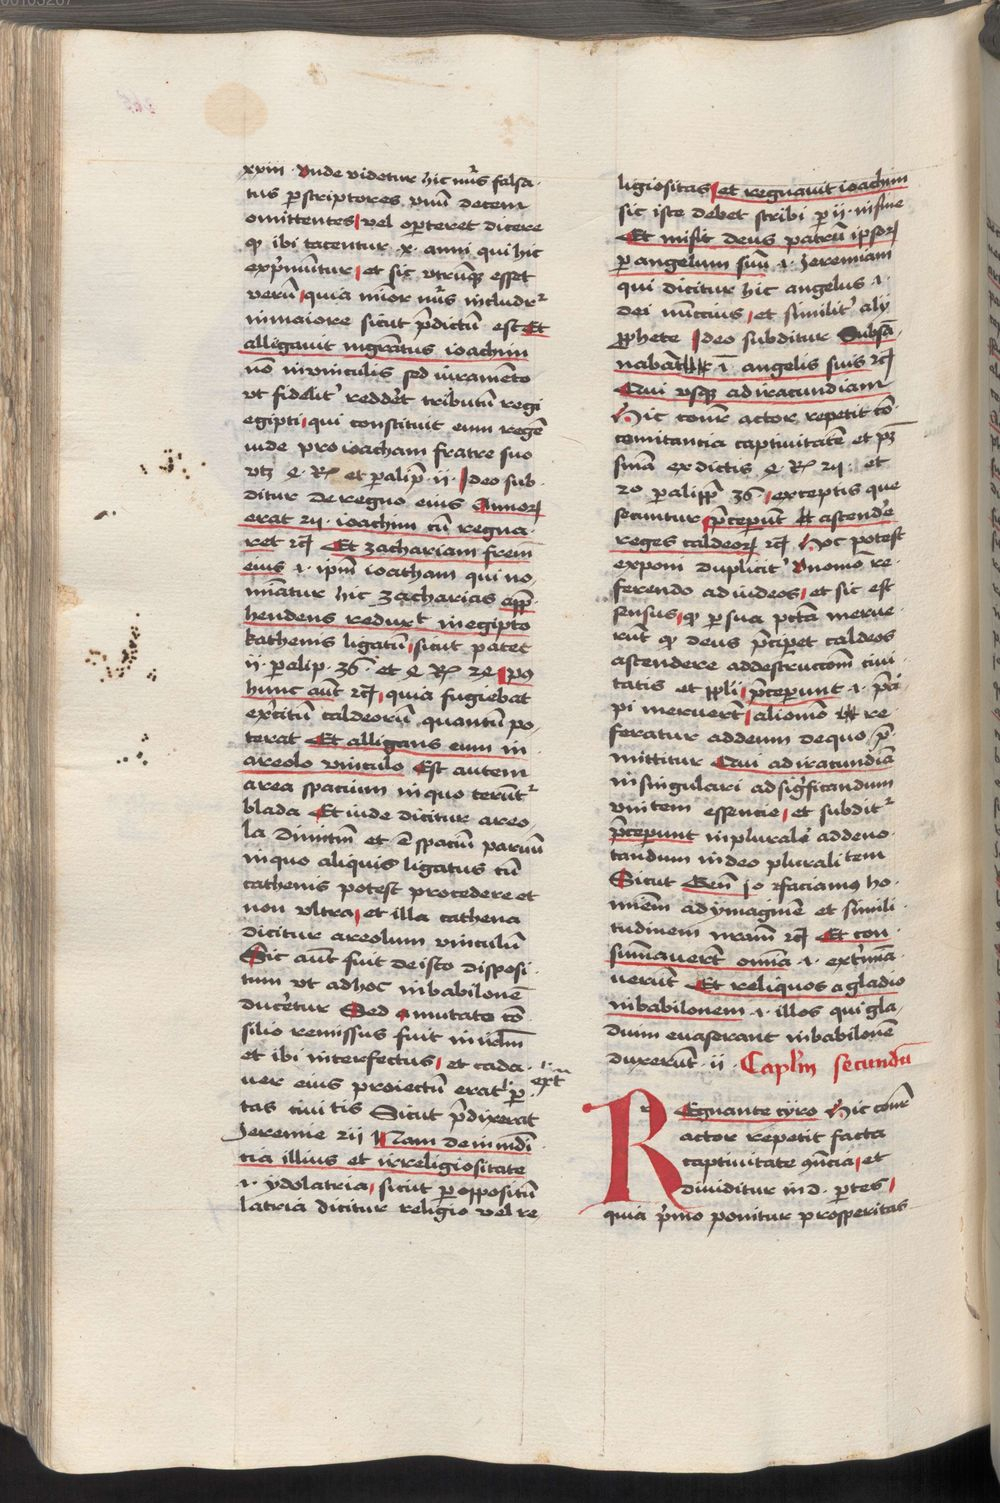 xviii · Unde videtur hic nu͛s falsa·
tus p̲ scriptores unū decem
omittentes vel op̲teret dicere
qꝫ ibi tacentur · x · anni qui hic
exp̄muntur et sic utrūqꝫ esset
verū quia mīor nu͛s includr͛
in maiore sicut p̄dictū est Et
alligavit mgrātus ioachim
nō in vinculis sed iuramēto
ut fidelit͛ reddet tributū regi
egipti qui constituit eum regē
iude pro ioacham fratre suo
utꝫ 4 · Rꝫ et paralip̄ · ii · Ideo sub·
ditur de regno eius Annorꝫ
erat 2ii · ioachim cū regna·
ret rcꝫ Et zachariam frem̄
eius ·i· ip̄m ioatham qui no,
mīatur hic zacharias app̄·
hendens reduxt in egipto
kathenis ligatū sicut patet
ii · p̲alip · 36 · et 4 Rꝫ 24 · P9
hunc aūt rcꝫ, quia fugiebat
exc͛itū caldeorū quantū po,
terat Et alligans eum in
areolo vinculo Est autem
area spacium in quo terūt͛
blada Et inde dicitur areo,
la diminutī et ē spaciū parvū
in quo aliquis ligatus cū
cathenis potest procedere et
non ultra, et illa cathena
dicitur areolum vinculū
Sic aūt fuit de isto disposi·
tum ut adhoc in babilonē
duc͛etur Sed mutato cō·
silio remissus fuit in irl̄m
et ibi interfectus, et cada·
ver eius proiectū erat p̲ ext͛
tas civitis Sicut p̄dixerat
Jeremie 2ii Nam de inmūdi
tia illius et irreligiositate
·i· ydolatria, sicut p̲ oppositū
latria dicitur religio vel re
ligiositas et regnavit ioachim
sic iste debet scribi p̲ ii · in fine
Et misit deus patrū ipsorꝫ
p̲ angelum suū ·i· Jeremiam
qui dicitur hic angelus ·i·
dei nuncius, et similit͛ alij
p̲phete Ideo subditur Subsā·
nabāt ·i· angelis suis rcꝫ
Qui usqꝫ ad iracundiam
Hic cont͛ actor repetit cō·
comitantia captivitatē et pꝫ
smā ex dictis 4 · Rꝫ 2ii · et
20 paralipp̄ 36, exceptis que
secuntur p̄ceperunt ascend͛e
reges caldeorꝫ rcꝫ Hoc potest
exponi duplicit͛ Uno mō re·
ferendo ad iudeos, et sic est
sensus, qꝫ p̲ sua pctā merue·
rūt qꝫ deus p̄cip̲et caldeos
ascendere ad destructōnē civi·
tatis et ppli, p̄ceperunt ·i· p̄ci·
pi meruerūt, alio mō re·
feratur ad deum de quo p̄·
mittitur Qui ad iracundiā
in singulari ad sig͛ficandum
unitem essencie, et subdit͛
p̄ceperunt in plurale ad deno·
tandum in deo plurali tem
Sicut Gen̄ jo faciamꝰ ho·
minēm ad ymaginē et simili·
tudinem nram̄ rcꝫ Et con·
sumaverūt omīa ·i· ext͛mīa·
verūt Et reliquos a gladio
in babilonem ·i· illos qui gla,
dium evaserant in babilonē
duxerūt · ii · Cap̲l͛m secundū
REgnante cyro Hic cont͛
actor repetit facta
captivitate 9n̄cia, et
dividitur in d · p̲tes,
quia p̄mo ponitur prosperitas